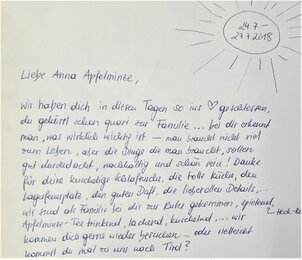 24.7 –
27.7 2018
Liebe Anna Apfelminze,
wir haben dich in diesen Tagen so ins ♡ geschlossen,
du gehörst schon quasi zur Familie ... bei dir erkennt
man, was wirklich wichtig ist – man braucht nicht viel
zum Leben, aber die Dinge die man braucht, sollten
gut durchdacht, nachhaltig und schön sein! Danke
für deine kuschelige Schlafnische, die tolle Küche, den
Lagerfeuerplatz, den guten Duft, die liebevollen Details, ...
wir sind als Familie bei dir zur Ruhe gekommen, spielend,
Apfelminz-Tee trinkend, lachend, kuschelnd, ... wir
kommen dich gerne wieder besuchen ... oder vielleicht
kommst du mal zu uns nach Tirol?